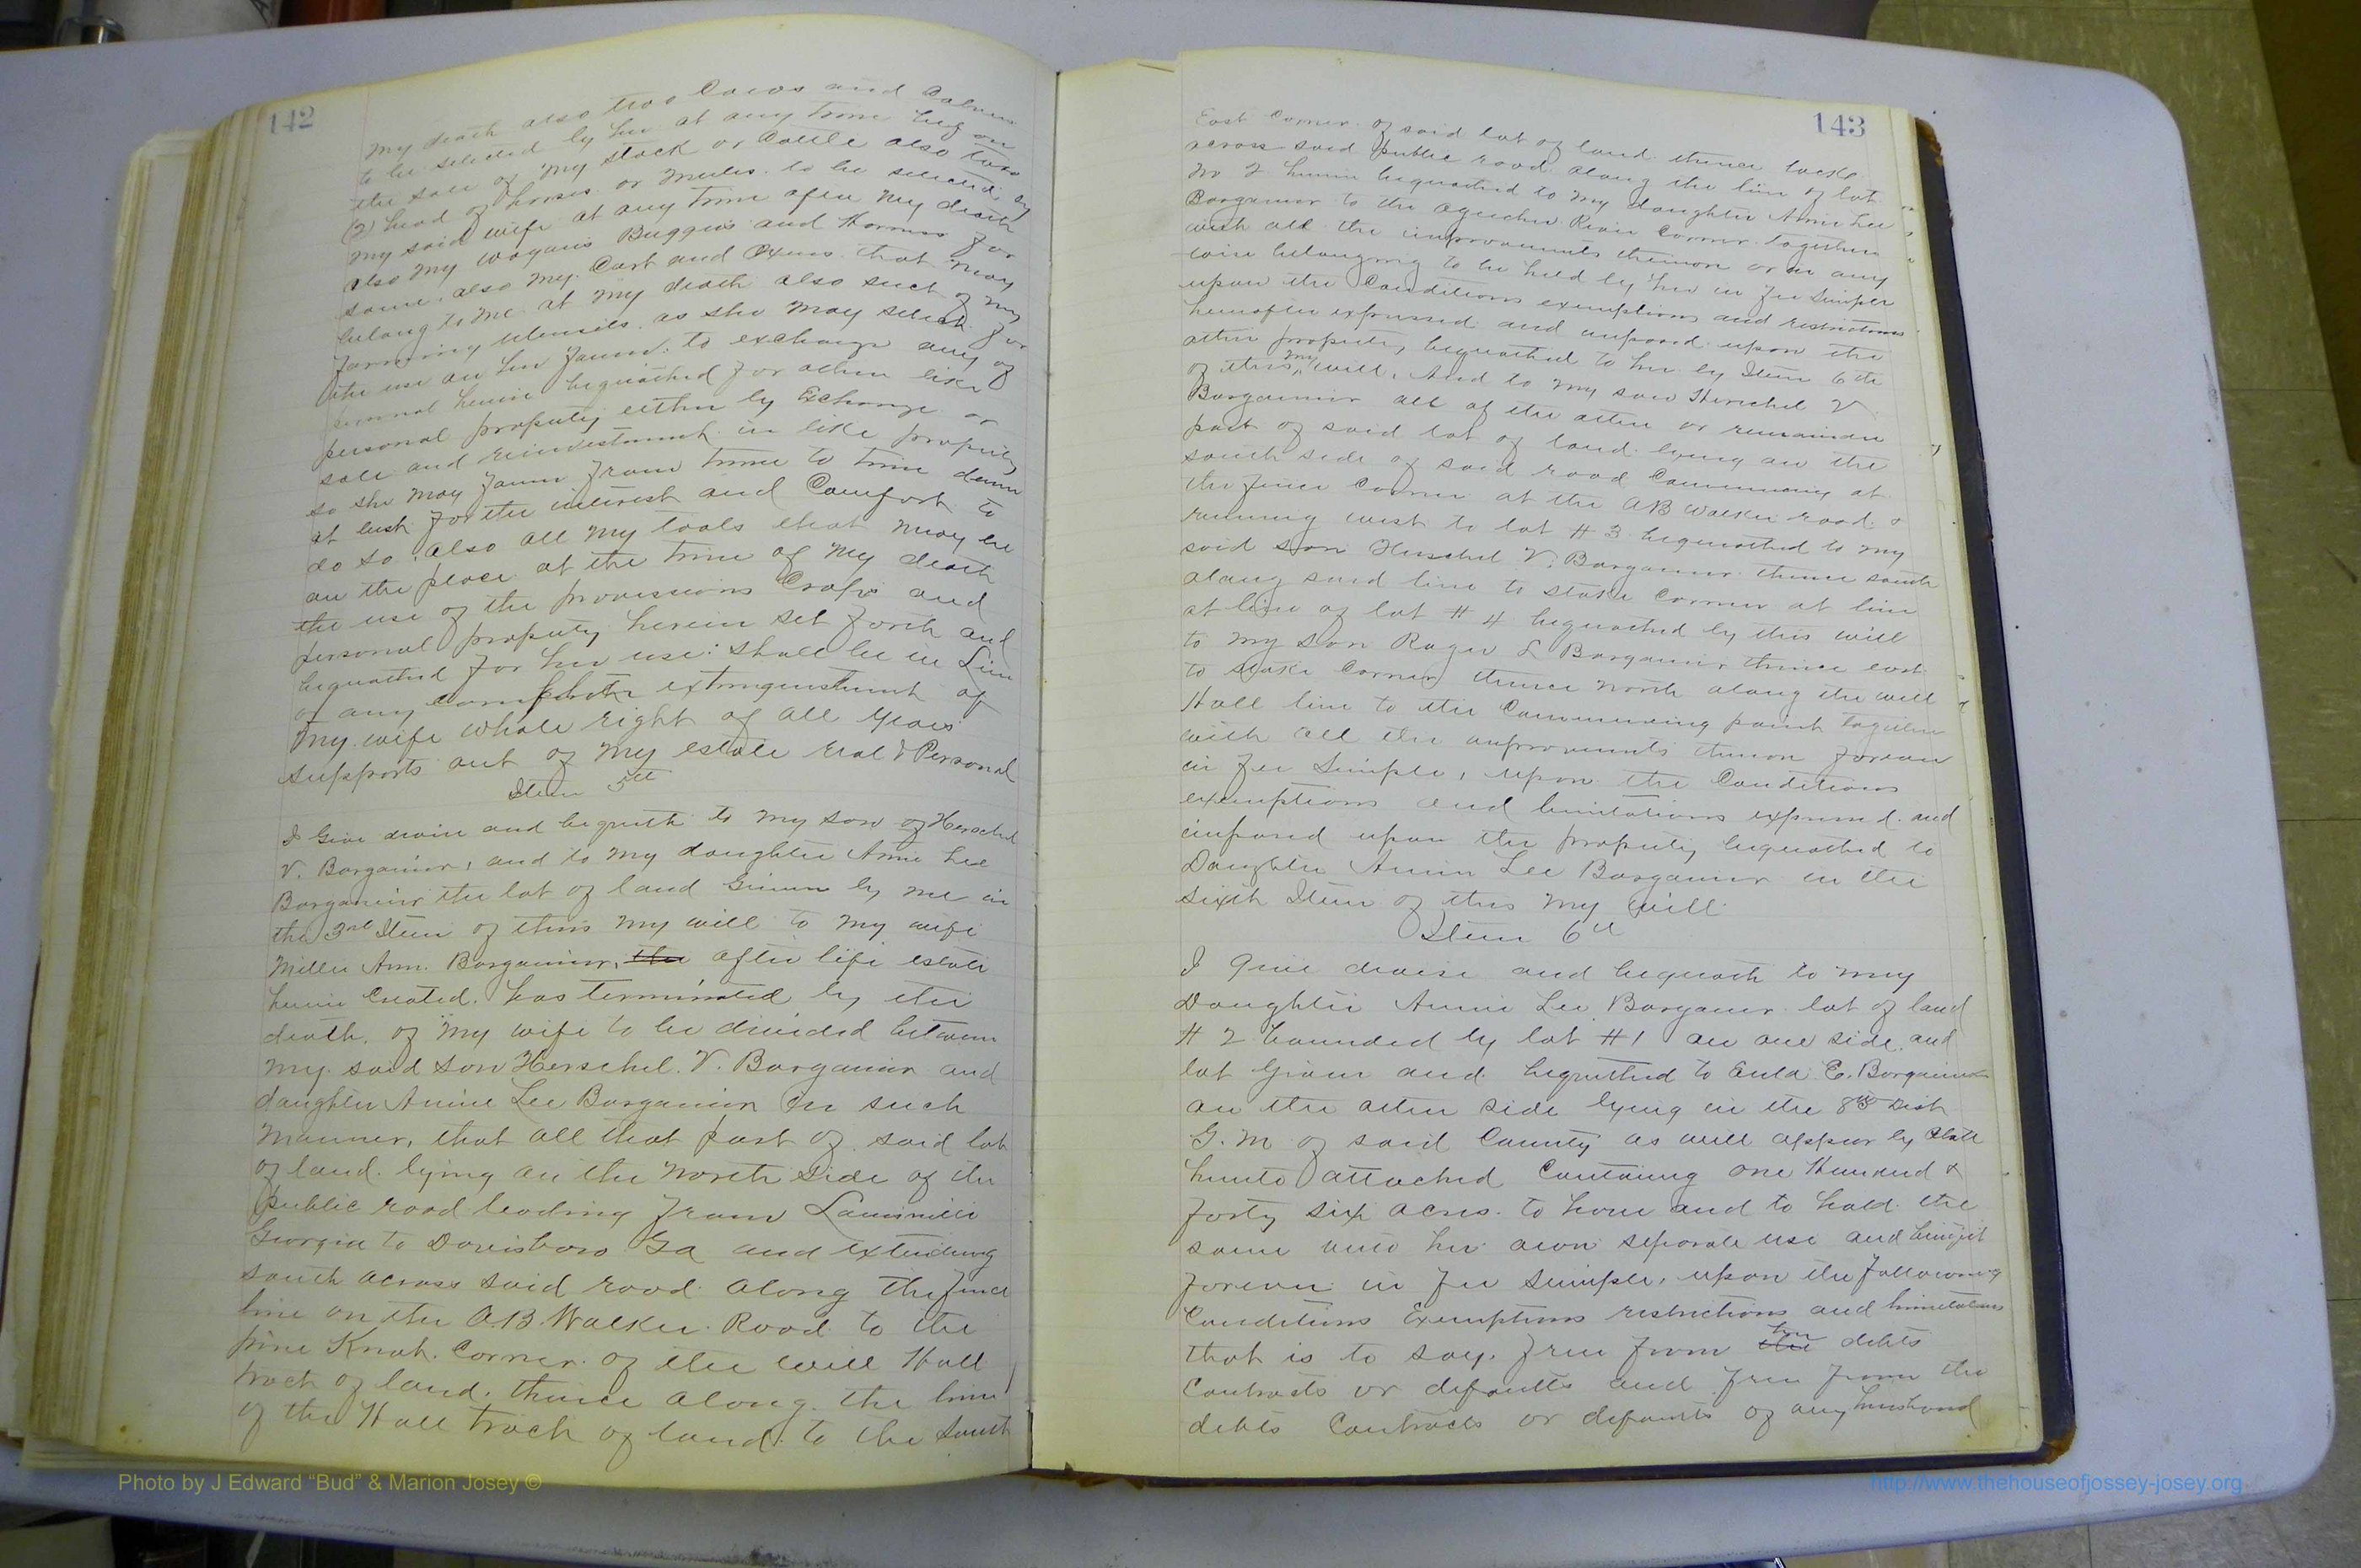 142
my death also two Cows and Calves
to be selected by her at any time
the sale of my stock or Cattle also two
(2) head of horses or Mules to be selected by
my said wife at any time after my death
also my wagons Buggies and Harness for
same. also my Cart and Oxens that may
belong to me at my death also such of my
farming utensils as she may select for
the use on her farm: to exchange any of
herein bequeathed for other like
personal property either by Exchange or
sale and reinvestment in like property
so she may from time to time deem
at best for the interest and Comfort to
do so. also all my tools that may be
on the place at the time of my death
the use of the provisions Crops and
personal property herein set forth and
bequeathed for her use: shall be in Lieu
of any complete extinguishment of
my wife whole right of all years
supports out of my estate real & Personal
Item 5th
I Give devise and bequeth to my son of Herschel
V. Bargainier, and to my daughter Annie Lee
Bargainier the lot of land Given by me in
the 3rd Item of this my will to my wife
Millie Ann. Bargainier, the after life estate
herein Created. has terminated by the
death. of my wife to be divided between
my said son Herschel. V. Bargainier and
daughter Annie Lee Bargainier in such
Manner, that all that part of said lot
of land. lying on the North Side of the
public road leading from Louisville
Georgia to Davisboro Ga and extending
south across said road along the fence
line on the A.B. Walker Road to the
pine Knot. Corner. of the Will Hall
track of land. thence along. the line
of the Hall track of land. to the South
143
East Corner of said lot of land thence back
across said public road along the line of lot
No 2 herein bequeathed to my daughter Annie Lee
Bargainier to the Ogeechee River Corner. together
with all the improvements thereon or in any
wise belonging to be held by her in fee simple
upon the Conditions exemptions and restrictions
hereafter expressed and imposed upon the
other property bequeathed to her by Item 6th
of this my will, And to my son Herschel V
Bargainier all of the other or remainder
part of said lot of land lying on the
south side of said road Commencing at
the fence Corner at the AB Walker road &
running west to lot # 3 bequeathed to my
said son Herschel V. Bargainier thence south
along said line to stake Corner at line
at line of lot # 4 bequeathed by this will
to my son Roger L Bargainier thence east
to stake Corner thence North along the will
Hall line to the Commencing point together
with all the improvements thereon forever
in fee Simple, upon the Conditions
exemptions and limitations expressed. and
imposed upon the property bequeathed to
Daughter Annie Lee Bargainier in the
sixth Item of this my will
Item 6th
I give devise and bequeath to my
Daughter Annie Lee Bargainer lot of land
# 2 bounded by lot #1 on one side and
lot given and bequethed to Eula E. Bargainier
on the other side lying in the 83 Dist
G. M of said County as will appear by Platt
hereto attached Containg one Hundred &
forty six acres. to have and to hold the
same unto her own seperate use and benefit
forever in fee simple, upon the following
Conditions Exemptions restrictions and limitations
that is to say. free from the her debts
Contracts or defaults and free from the
debts Contracts or defaults of any husband
Photo by J Edward “Bud” & Marion Josey ©
http://www.thehouseofjossey-josey.org